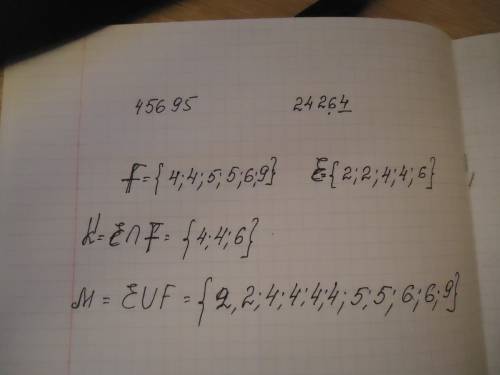 45695 24264
F={4;4;5;5;6;9} E={2;2;4;4;6}
K=E∩F={4;4;6}
M=EUF={2,2;4;4;4;4;5,5;6;6;9}